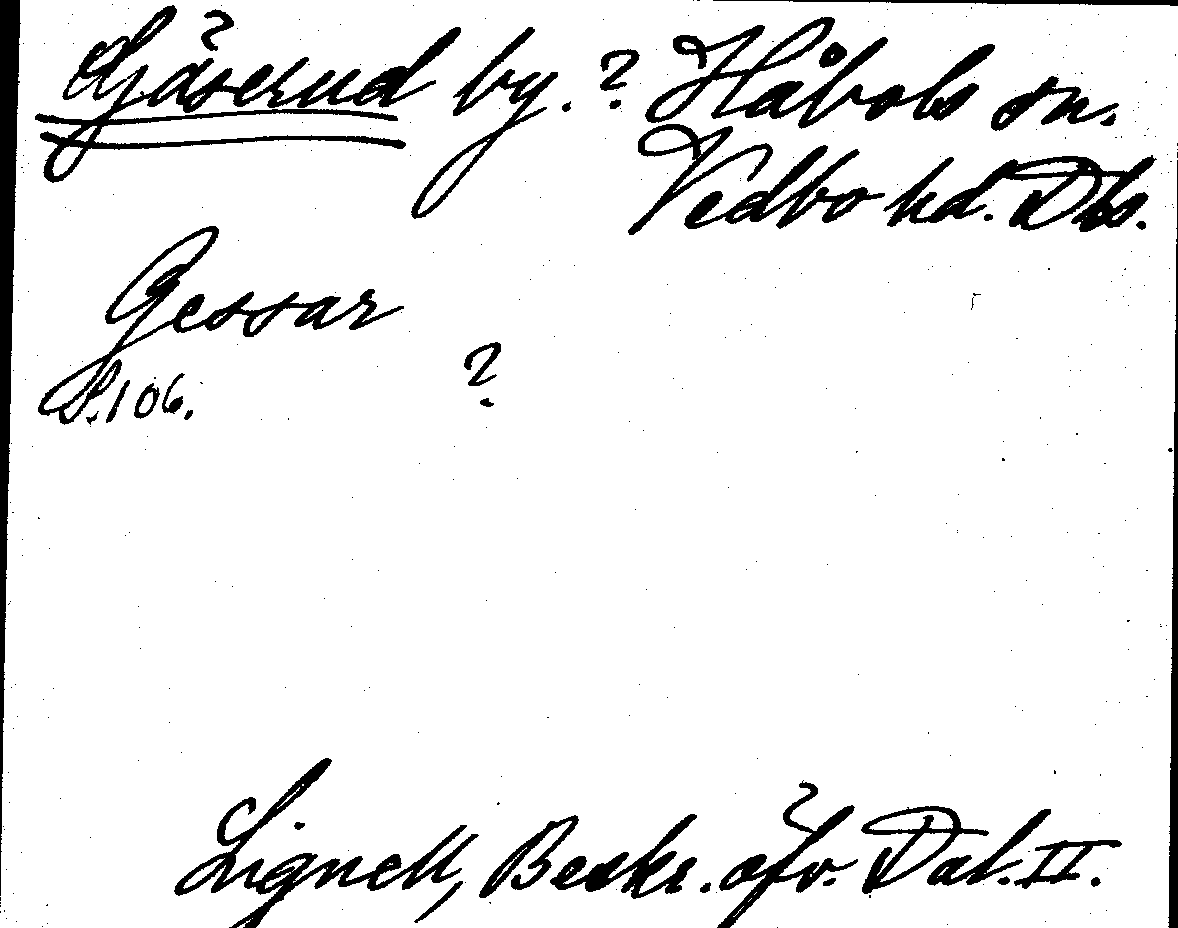 Gjäserud by. ? Håbols sn.
Vedbo hd. Dls.
Gessar
S. 106. ?
Lignell, Beskr. öfv. Dal. II.